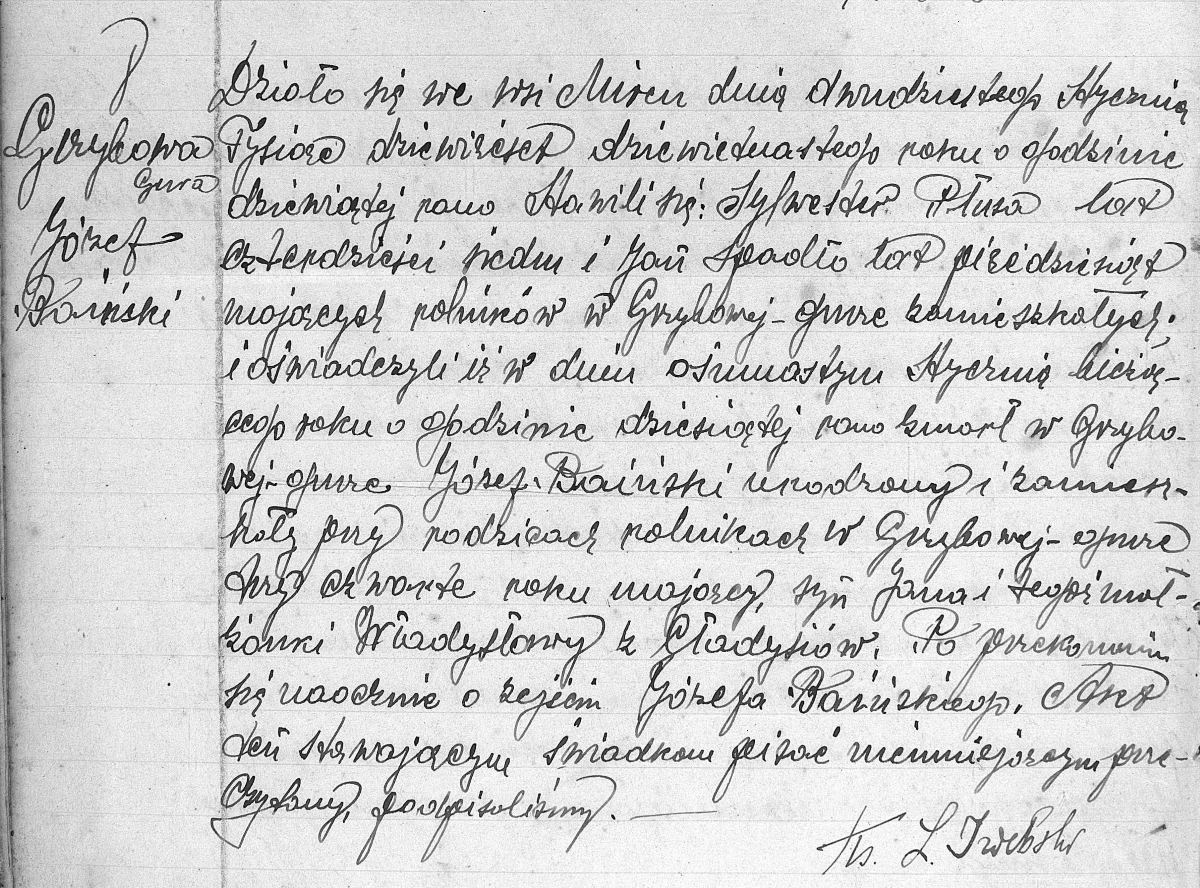 8
Grzybowa
Gura
Józef
Baiński
Działo się we wsi Mircu dnia dwudziestego Stycznia
Tysiąc dziewięćset dziewietnastego roku o godzinie
dziewiątej rano Stawili się: Sylwester Płusa lat
czterdzieści siedm i Jań Spadło lat pięćdziesiąt
mających rolników w Grzybowej-gurze zamieszkałych,
i oświadczyli iż w dniu ośmnastym Stycznia bieżą-
cego roku o godzinie dziesiątej rano zmarł w Grzybo-
wej-gurze Józef Baiński urodzony i zamiesz-
kały przy rodzicach rolnikach w Grzybowej-gurze
trzy czwarte roku mający, syń Jana i tegoż mał-
żonki Władysławy z Gładysiów. Po przekonaniu
się naocznie o zejściu Józefa Baińskiego, Akt
teń stawającym świadkom pisać nieumiejącym prze-
czytany, podpisaliśmy.
Ks. L.